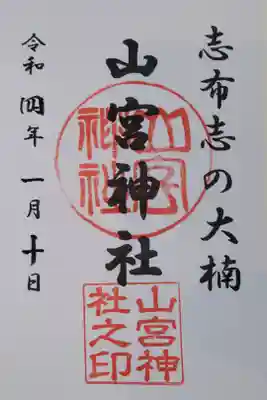 志布志の大楠
山宮神社
令和四年一月十日
山宮神社
山宮神
社之印